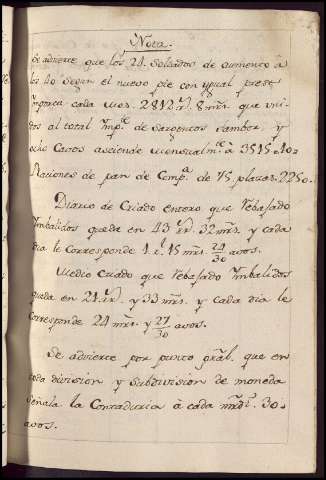 Nota.
Se advierte que los 24. Soldados de aumento à
los 40 segun el nuevo pie con ygual prest
ymporta cada mes. 2812 r.^s 8 mrs. que vni-
dos al total ymp.^te de Sargentos tambor, y
ocho Cavos asciende mensualm.^te à 3515..10..
Raciones de pan de Comp.^a de 75 plazas. 2250.
Diario de Criado entero que rebajado
Ymbalidos queda en 43 r.^s 32 mrs. y cada
dia le corresponde 1 r.^l 15 mrs. 24/30 avos.
Medio Criado que rebajado Ymbalidos
queda en 21 r.^s y 33 mrs. y cada dia le
Corresponde 24 mrs. y 27/30 avos.
Se advierte por punto gral. que en
toda division y Subdivision de moneda
señala la Contaduria à cada mrd.^l 30.
avos.